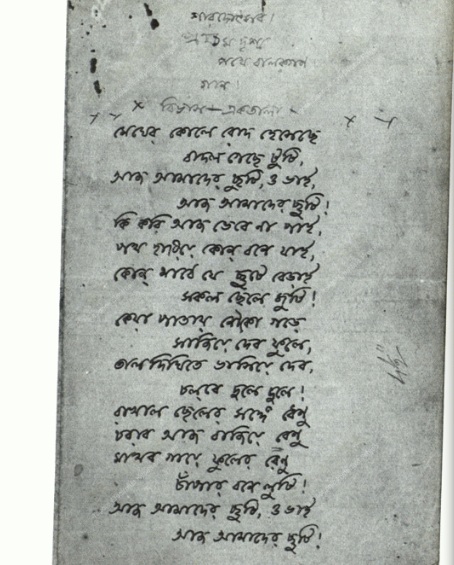 শারদোৎসব!
প্রথম দৃশ্য
পথে বালকগণ
গান!
বিভাস—একতালা
মেঘের কোলে রোদ হেসেছে
বাদল গেছে টুটি,
আজ আমাদের ছুটি, ও ভাই,
আজ আমাদের ছুটি!
কি করি আজ ভেবে না পাই,
পথ হারিয়ে কোন্ বনে যাই,
কোন্ মাঠে যে ছুটে বেড়াই
সকল ছেলে জুটি!
কেয়া পাতায় নৌকো গড়ে
সাজিয়ে দেব ফুলে,
তালদিঘিতে ভাসিয়ে দেব,
চলবে দুলে দুলে!
রাখাল ছেলের সঙ্গে ধেনু
চরাব আজ বাজিয়ে বেণু
মাখব গায়ে ফুলের রেণু
চাঁপার বনে লুটি!
আজ আমাদের ছুটি, ও ভাই
আজ আমাদের ছুটি!